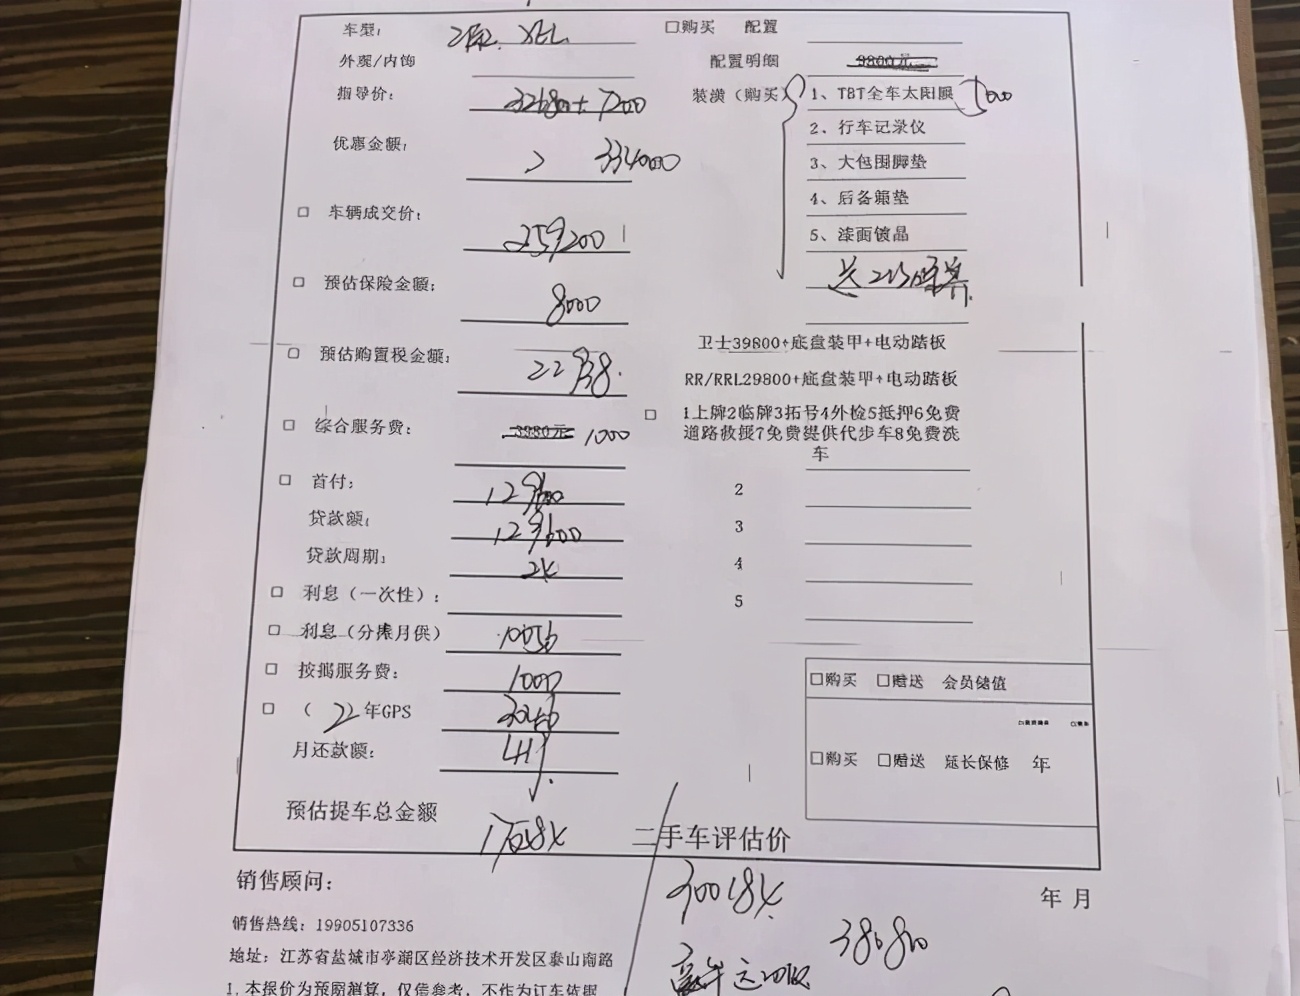 车型： XEL □购买 配置
外观/内饰 配置明细 9800元
指导价： 326800+7200 装潢（购买） 1、TBT全车太阳膜
优惠金额： 334000 2、行车记录仪
3、大包围脚垫
4、后备箱垫
□ 车辆成交价： 259200 5、漆面镀晶
□ 预估保险金额： 8000 送
卫士39800+底盘装甲+电动踏板
□ 预估购置税金额： 22938.
RR/RRL29800+底盘装甲+电动踏板
□ 综合服务费： 3980元 1000 □ 1上牌2临牌3拓号4外检5抵押6免费
道路救援7免费提供代步车8免费洗
车
□ 首付： 129600 2
贷款额： 129600 3
贷款周期： 24 4
□ 利息（一次性）： 5
□ 利息（分摊月供） 10056
□ 按揭服务费： 1000 □购买 □赠送 会员储值
□ （ 2）年GPS
月还款额： □购买 □赠送 延长保修 年
预估提车总金额 二手车评估价
销售顾问： 300184 年 月
销售热线：19905107336 380800
地址：江苏省盐城市亭湖区经济技术开发区泰山南路
1.本报价为预购测算，仅供参考，不作为订车依据